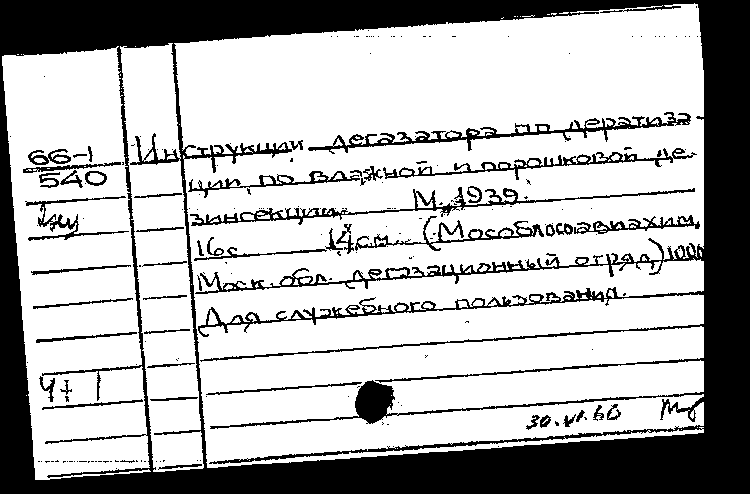 66-1
540
Инструкции дегазатора по дератиза-
ции, по влажной и порошковой де-
зинсекции. М., 1939.
16 с. 14 см. (Мособлосоавиахим,
Моск. обл. дегазационный отряд) 1000
Для служебного пользования.
Ч+1
30.VI.66